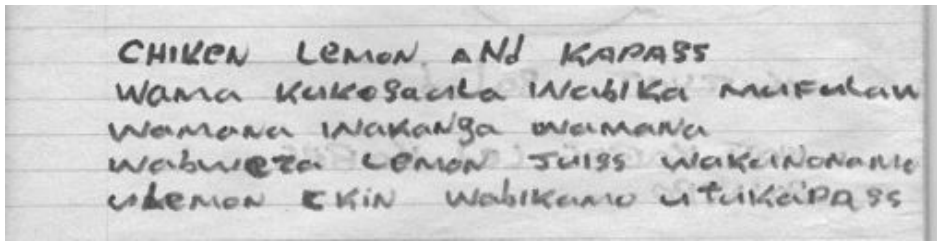 CHIKEN LEMON AND KAPASS
WAMA KUKOSAULA WABIKA MUFULAU
WAMANA WAKANGA WAMANA
WABWEZA LEMON JUISS WAKAINONAMO
ULEMON CKIN WABIKAMO UTUKAPASS